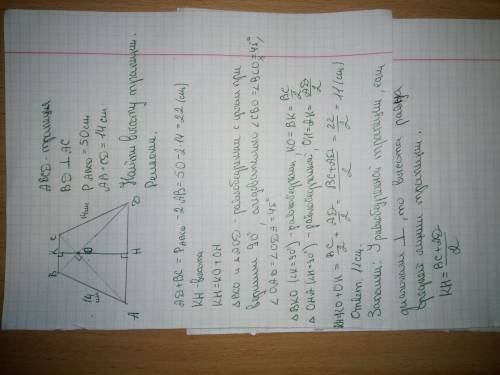 ABCD - трапеция
BD ⊥ AC
P ABCD = 50 см
AB = CD = 14 см
Найти высоту трапеции.
Решение.
B K C
14 см
14 см
O
A H D
AD + BC = P ABCD - 2 AB = 50 - 2·14 = 22 (см)
KH - высота
KH = KO + OH
△ BCO и △ AOD - равнобедренные с углом при
вершине 90° следовательно ∠CBO = ∠BCO = 45°,
∠OAD = ∠ODA = 45°
△ BKO (∠K = 90°) - равнобедрен., KO = BK = BC/2
△ OHA (∠H = 90°) - равнобедренный; OH = AH = AD/2
KH = KO + OH = BC/2 + AD/2 = (BC + AD)/2 = 22/2 = 11 (см)
Ответ: 11 см.
Запомни: У равнобедренной трапеции, если
диагонали ⊥, то высота равна
средней линии трапеции.
KH = (BC + AD)/2